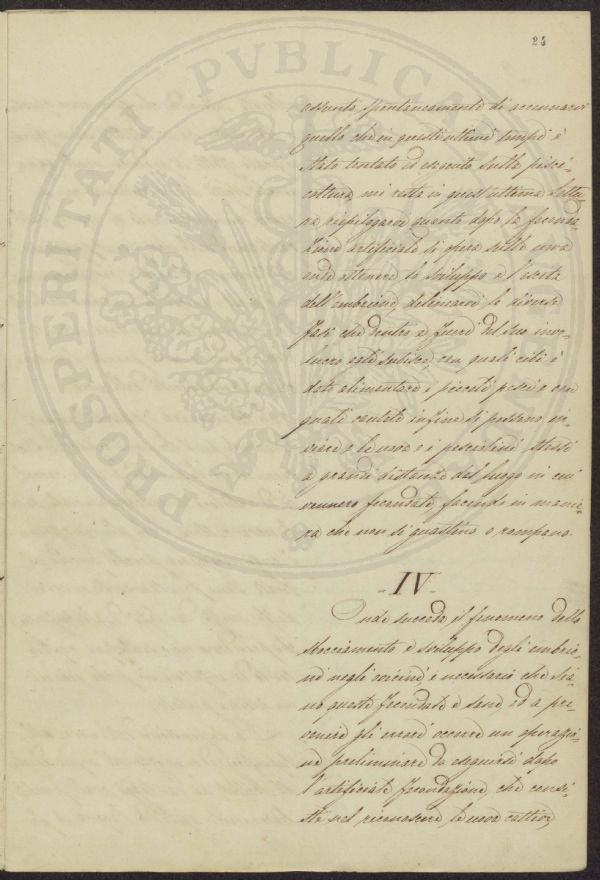 24
assunto spontaneamente di accennarvi
quello che in questi ultimi tempi è
stato tentato ed eseguito sulla pisci-
coltura, mi resta in quest'ultima lettu-
ra riepilogarvi quanto dopo la feconda-
zione artificiale si opera sulle uova
onde ottenere lo sviluppo e l'uscita
dell'embrione, delinearvi le diverse
fasi che dentro e fuori del suo invo-
lucro esso subisce, con quali cibi è
dato alimentare i piccoli pesci e con
quali cautele infine si possano in-
viare e le uova e i pesciolini stessi
a grandi distanze dal luogo in cui
vennero fecondate, facendo in manie-
ra che non si guastino o rompano.
- IV -
Onde succeda il fenomeno dello
sbocciamento e sviluppo degli embrio-
ni negli ovicini è necessario che sia-
no questi fecondati e sani, ed a pre-
venire gli errori occorre un operazio-
ne preliminare da eseguirsi dopo
l'artificiale fecondazione, che consi-
ste nel riconoscere le uova cattive,
PROSPERITATI PVBLICAE